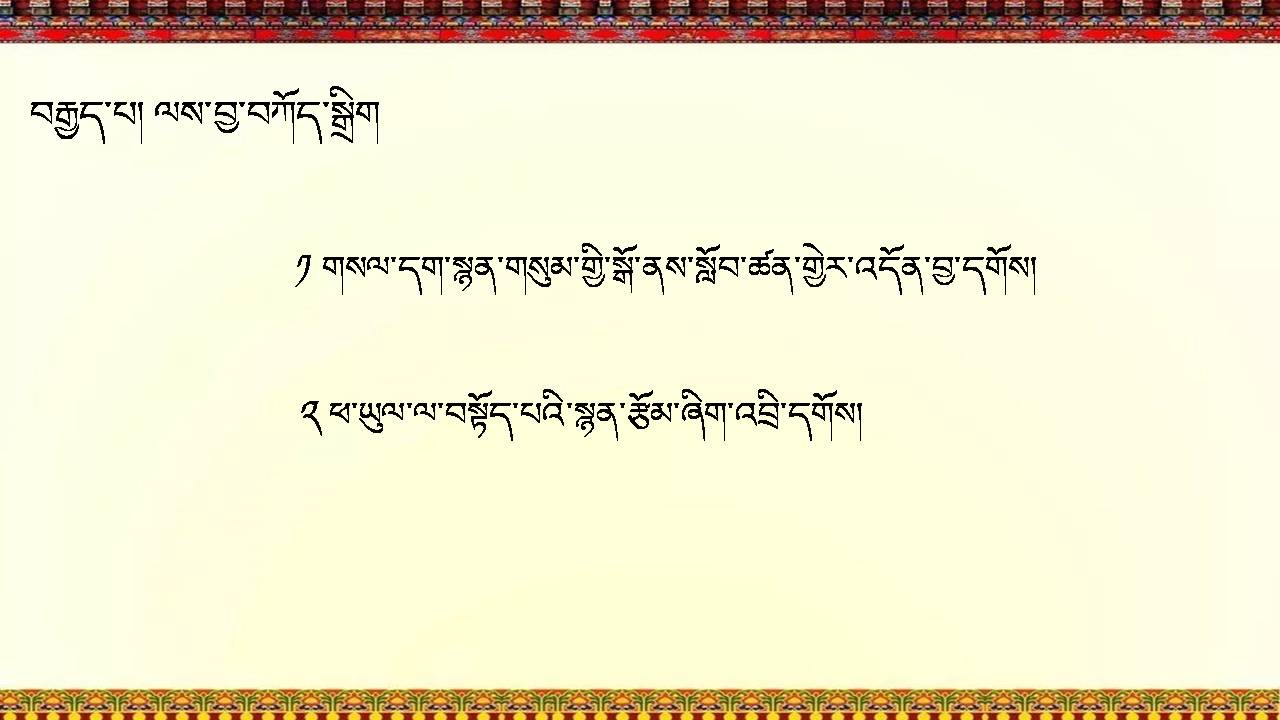 བརྒྱད་པ། ལས་བྱ་བཀོད་སྒྲིག
༡ གསལ་དག་སྙན་གསུམ་གྱི་སྒོ་ནས་སློབ་ཚན་གྱེར་འདོན་བྱ་དགོས།
༢ ཕ་ཡུལ་ལ་བསྟོད་པའི་སྙན་རྩོམ་ཞིག་འབྲི་དགོས།